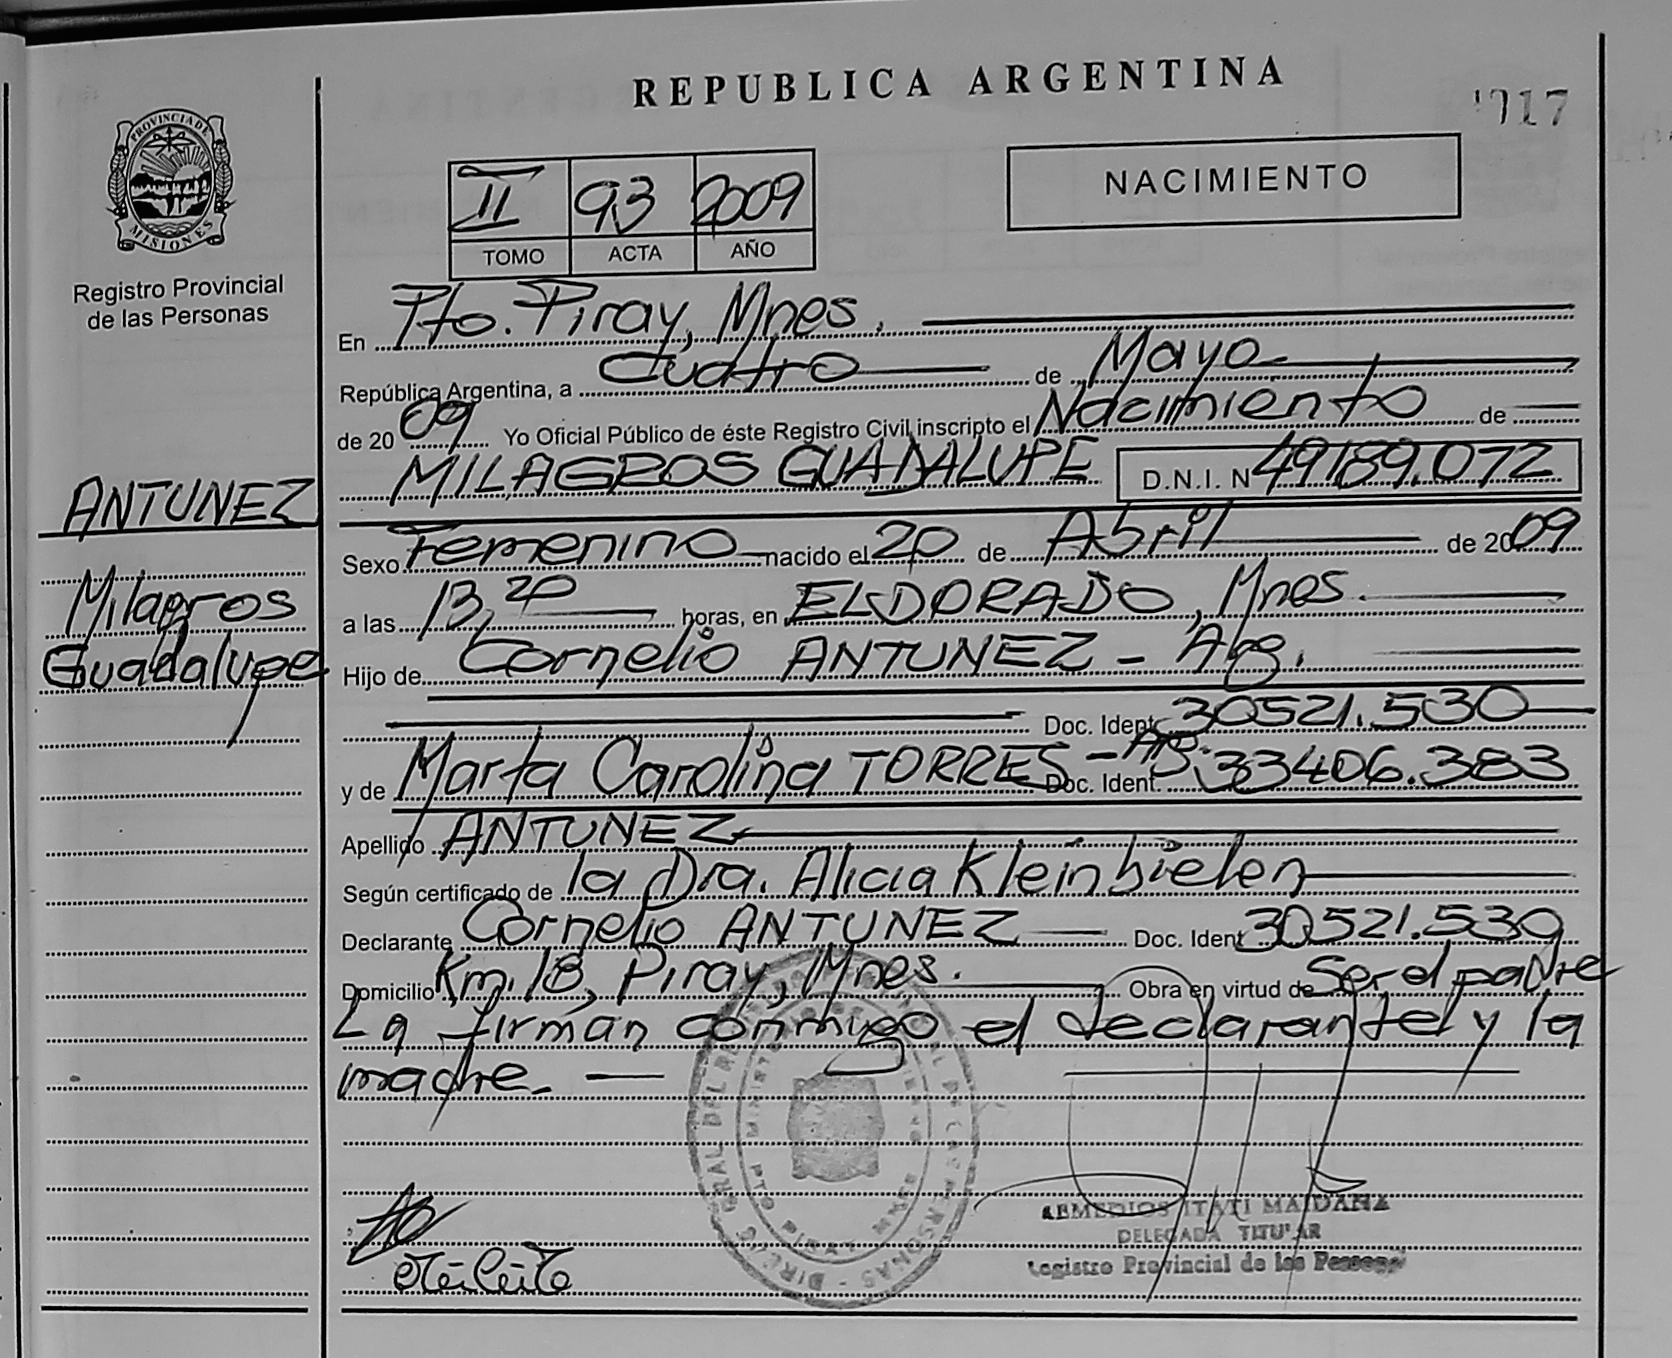 REPUBLICA ARGENTINA
017
PROVINCIA DE
MISIONES
Registro Provincial
de las Personas
NACIMIENTO
II 93 2009
TOMO ACTA AÑO
En Pto. Piray, Mnes.
República Argentina, a cuatro de Mayo
de 2009 Yo Oficial Público de éste Registro Civil inscripto el Nacimiento de
MILAGROS GUADALUPE D.N.I. N 49189.072
ANTUNEZ
Milagros
Guadalupe
Sexo Femenino nacido el 20 de Abril de 2009
a las 13,20 horas, en ELDORADO, Mnes.
Hijo de Cornelio ANTUNEZ - Arg.
Doc. Ident. 30521.530
y de Marta Carolina TORRES - Arg. Doc. Ident. 33406.383
Apellido ANTUNEZ
Según certificado de la Dra. Alicia Kleinbielen
Declarante Cornelio ANTUNEZ Doc. Ident 30521.530
Domicilio Km. 18, Piray, Mnes. Obra en virtud de Ser el padre
La firman conmigo el declarante y la
madre.
REMEDIOS ITATI MAIDANA
DELEGADA TITULAR
Registro Provincial de las Personas